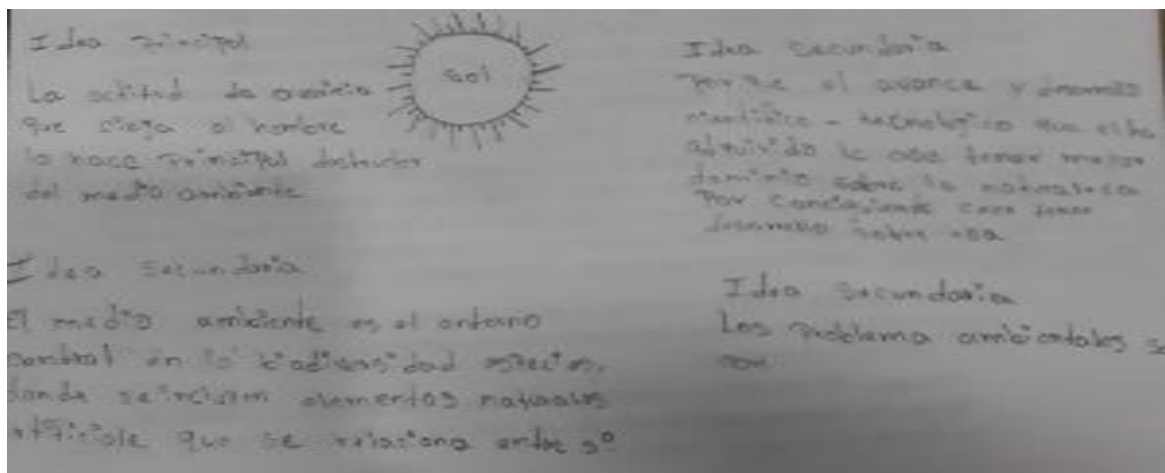 Idea Principal
sol
La actitud de avaricia
que ciega al hombre
lo hace principal destructor
del medio ambiente
Idea Secundaria
El medio ambiente es el entorno
central en la biodiversidad
donde se incluyen elementos naturales
que se relaciona entre sí
Idea Secundaria
Porque el avance y desarrollo
científico - tecnológico que
adquirido le tener mayor
dominio sobre la naturaleza
Por consiguiente tener
desarrollo sobre
Idea Secundaria
Los problema ambientales